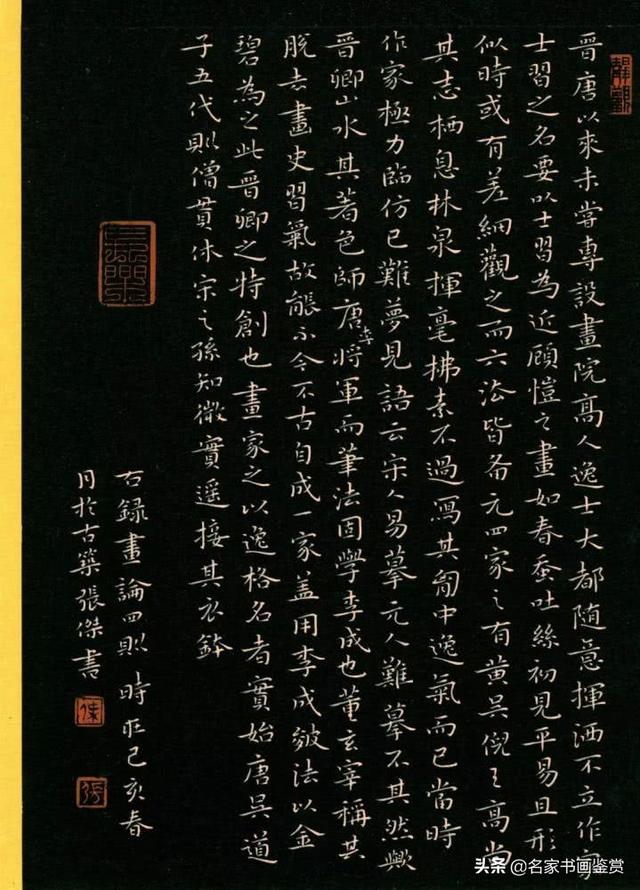 晉唐以來未嘗專設畫院高人逸士大都隨意揮洒不立作家
士習之名要以士習為近顧愷之畫如春蚕吐絲初見平易且形
似時或有差細觀之而六法皆备元四家之有黄吴倪王高尚
其志栖息林泉揮毫拂素不過寫其胷中逸氣而已當時
作家極力臨仿已難夢見語云宋人易摹元人難摹不其然歟
晉卿山水其著色師唐李將軍而筆法固學李成也董玄宰稱其
脫去畫史習氣故能不今不古自成一家盖用李成皴法以金
碧為之此晉卿之特創也畫家之以逸格名者實始唐吴道
子五代則僧貫休宗之孫知微實遥接其衣鉢
右録畫論四則時在己亥春
月於古築張傑書
頭条@名家书画鉴赏